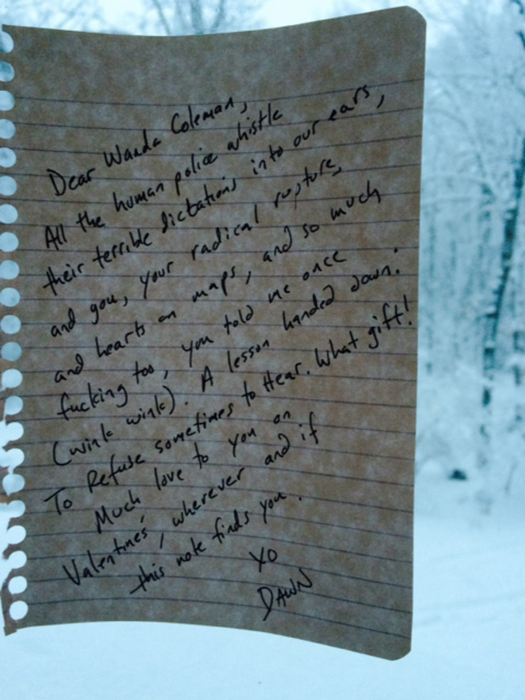 Dear Wanda Coleman,
All the human police whistle
their terrible dictations into our ears,
and you, your radical rupture,
and hearts on maps, and so much
fucking too, you told me once
(wink wink). A lesson handed down.
To Refuse sometimes to Hear. What gift!
Much love to you on
Valentines', wherever and if
this note finds you.
XO
DAWN